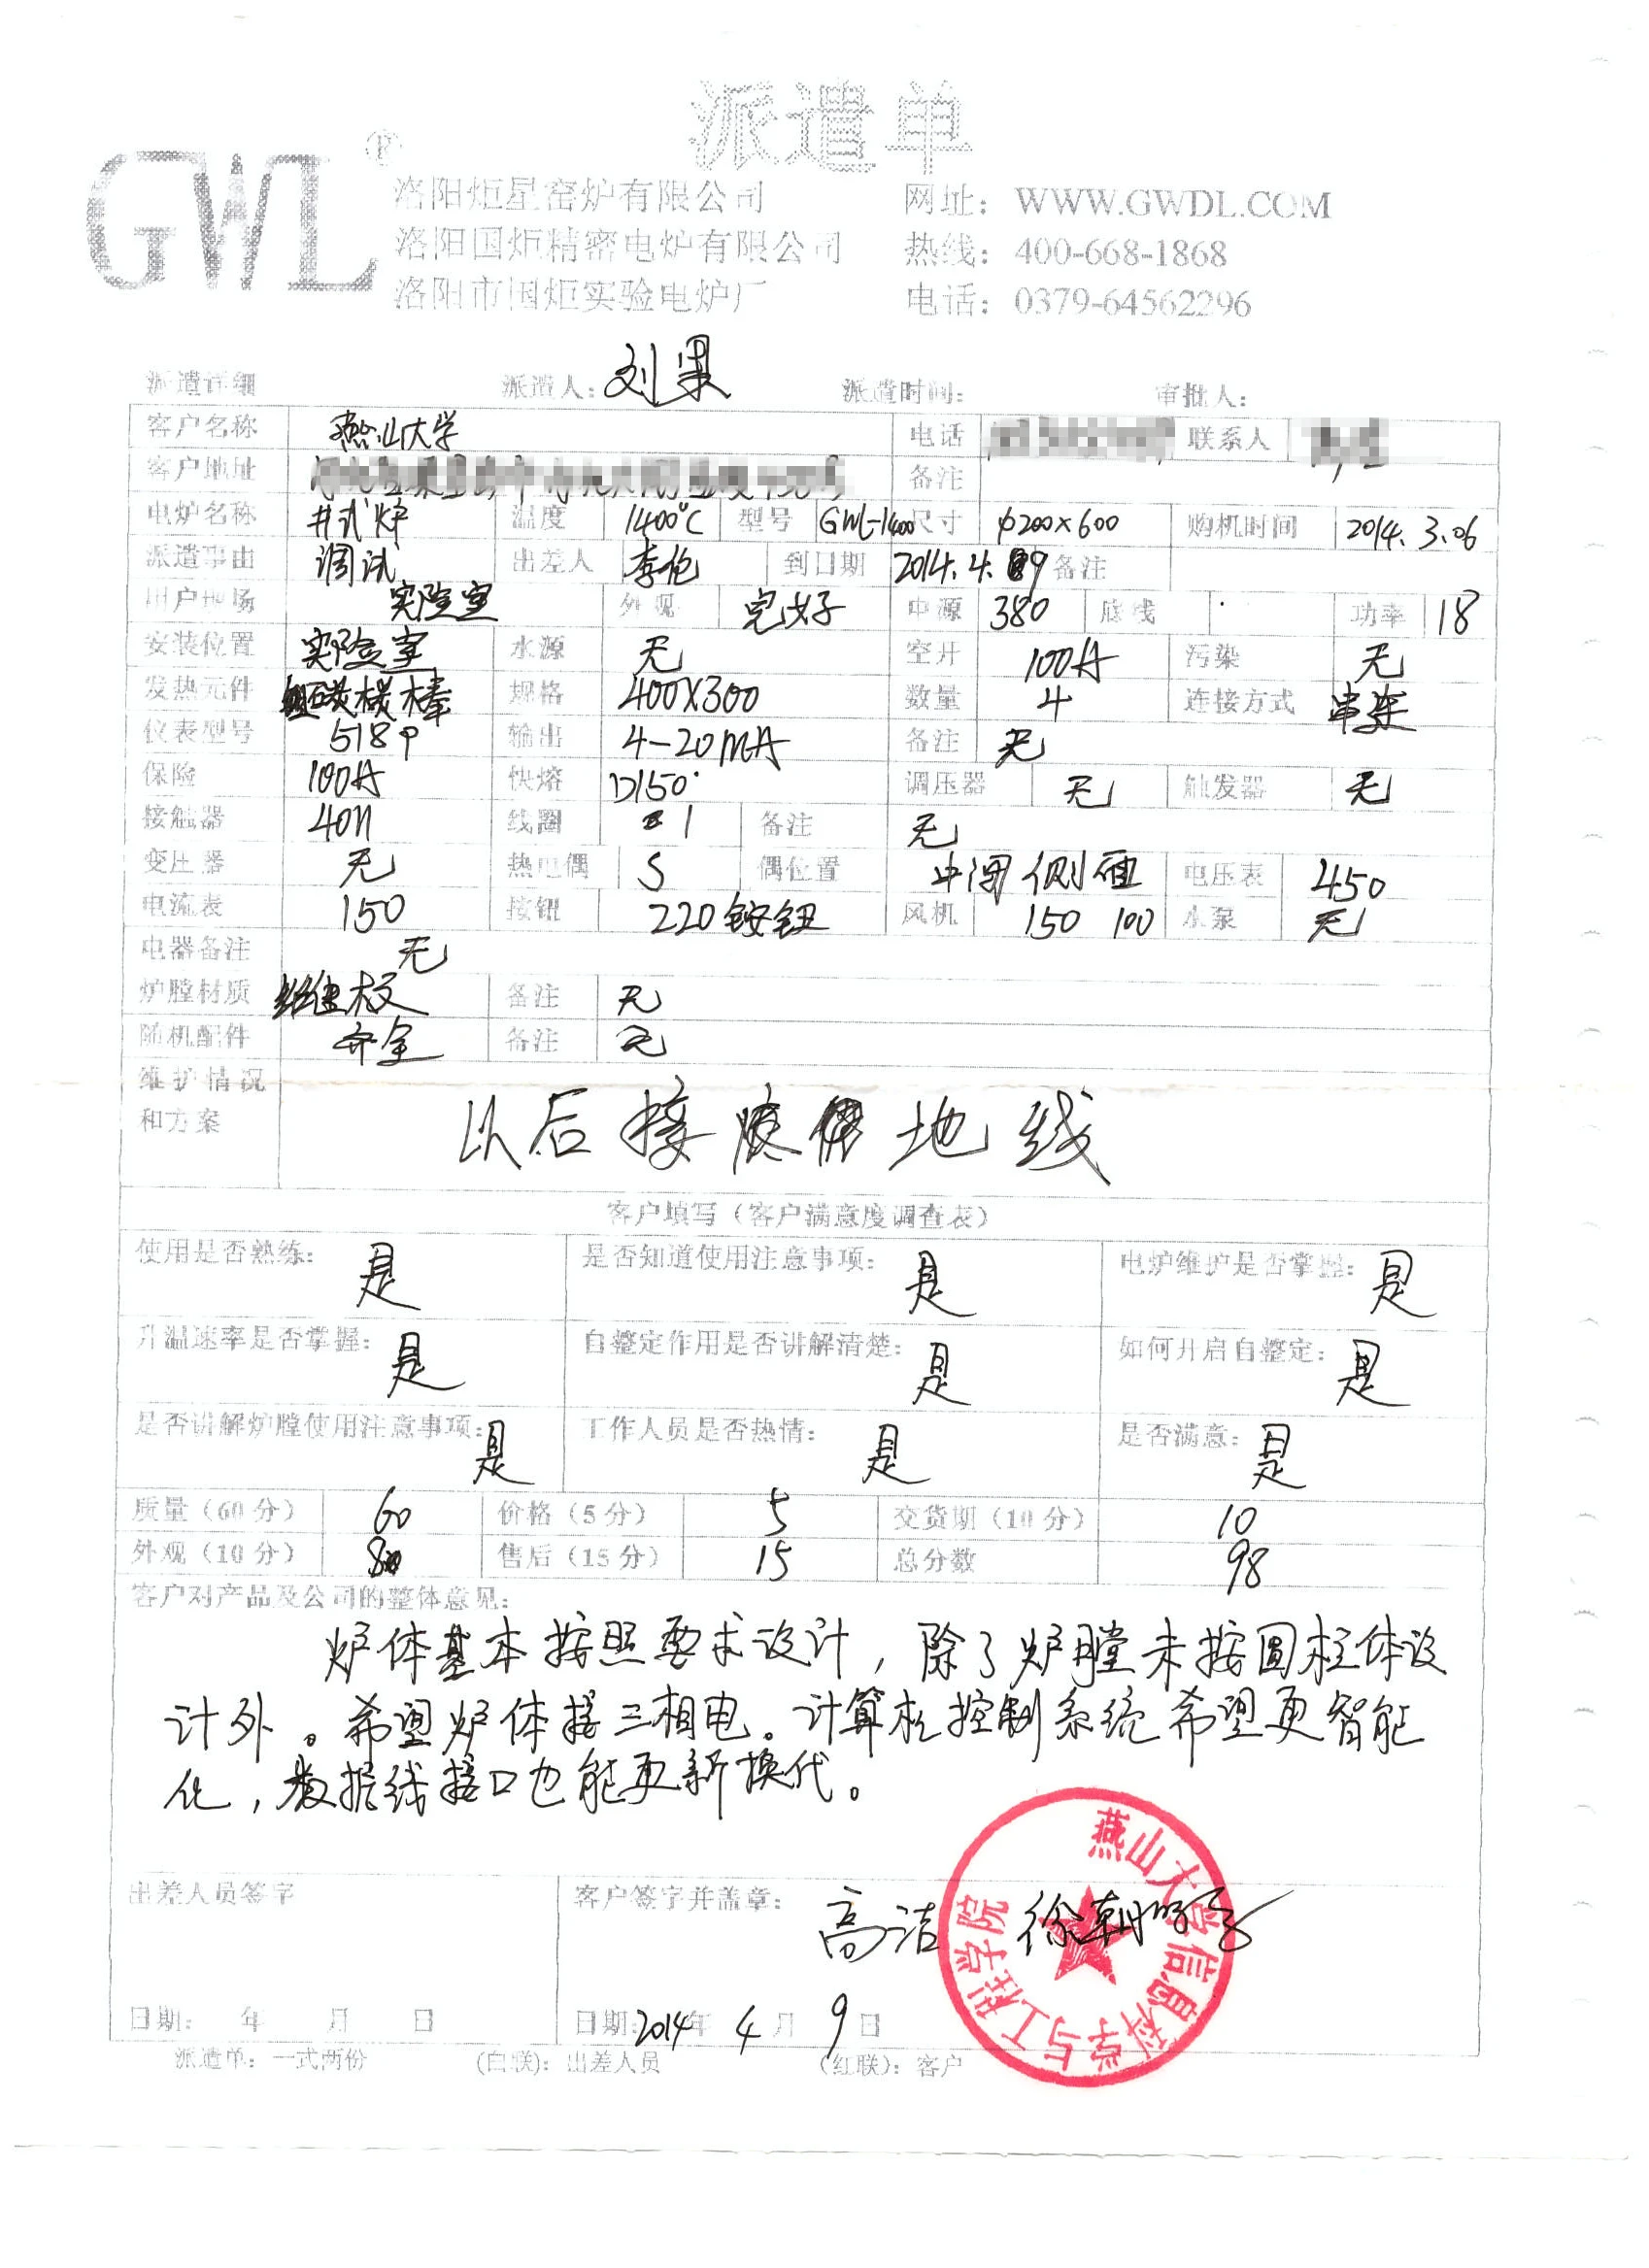 派遣单
GWL®
洛阳炬星窑炉有限公司 网址：WWW.GWDL.COM
洛阳国炬精密电炉有限公司 热线：400-668-1868
洛阳市国炬实验电炉厂 电话：0379-64562296
派遣详细 派遣人：刘果 派遣时间： 审批人：
客户名称 燕山大学 电话 联系人
客户地址 备注
电炉名称 井式炉 温度 1400℃ 型号 GWL-1400 尺寸 φ200×600 购机时间 2014.3.06
派遣事由 调试 出差人 李伦 到日期 2014.4.9 备注
用户现场 实验室 外观 完好 电源 380 底线 功率 18
安装位置 实验室 水源 无 空开 100A 污染 无
发热元件 硅碳棒 规格 400X300 数量 4 连接方式 串连
仪表型号 518P 输出 4-20MA 备注 无
保险 100A 快熔 D150 调压器 无 触发器 无
接触器 4011 线圈 1 备注 无
变压器 无 热电偶 S 偶位置 中间侧面 电压表 450
电流表 150 按钮 220按钮 风机 150 100 水泵 无
电器备注 无
炉膛材质 纤维板 备注 无
随机配件 齐全 备注 无
维护情况
和方案 以后接 地线
客户填写（客户满意度调查表）
使用是否熟练：是 是否知道使用注意事项：是 电炉维护是否掌握：是
升温速率是否掌握：是 自整定作用是否讲解清楚：是 如何开启自整定：是
是否讲解炉膛使用注意事项：是 工作人员是否热情：是 是否满意：是
质量（60分） 60 价格（5分） 5 交货期（10分） 10
外观（10分） 8 售后（15分） 15 总分数 98
客户对产品及公司的整体意见：
炉体基本按照要求设计，除了炉膛未按圆柱体设
计外。希望炉体接三相电。计算机控制系统希望更智能
化，数据线接口也能更新换代。
出差人员签字 客户签字并盖章：高洁 徐朝
燕山大学信息科学与工程学院
日期： 年 月 日 日期：2014年 4月 9日
派遣单：一式两份 （白联）：出差人员 （红联）：客户